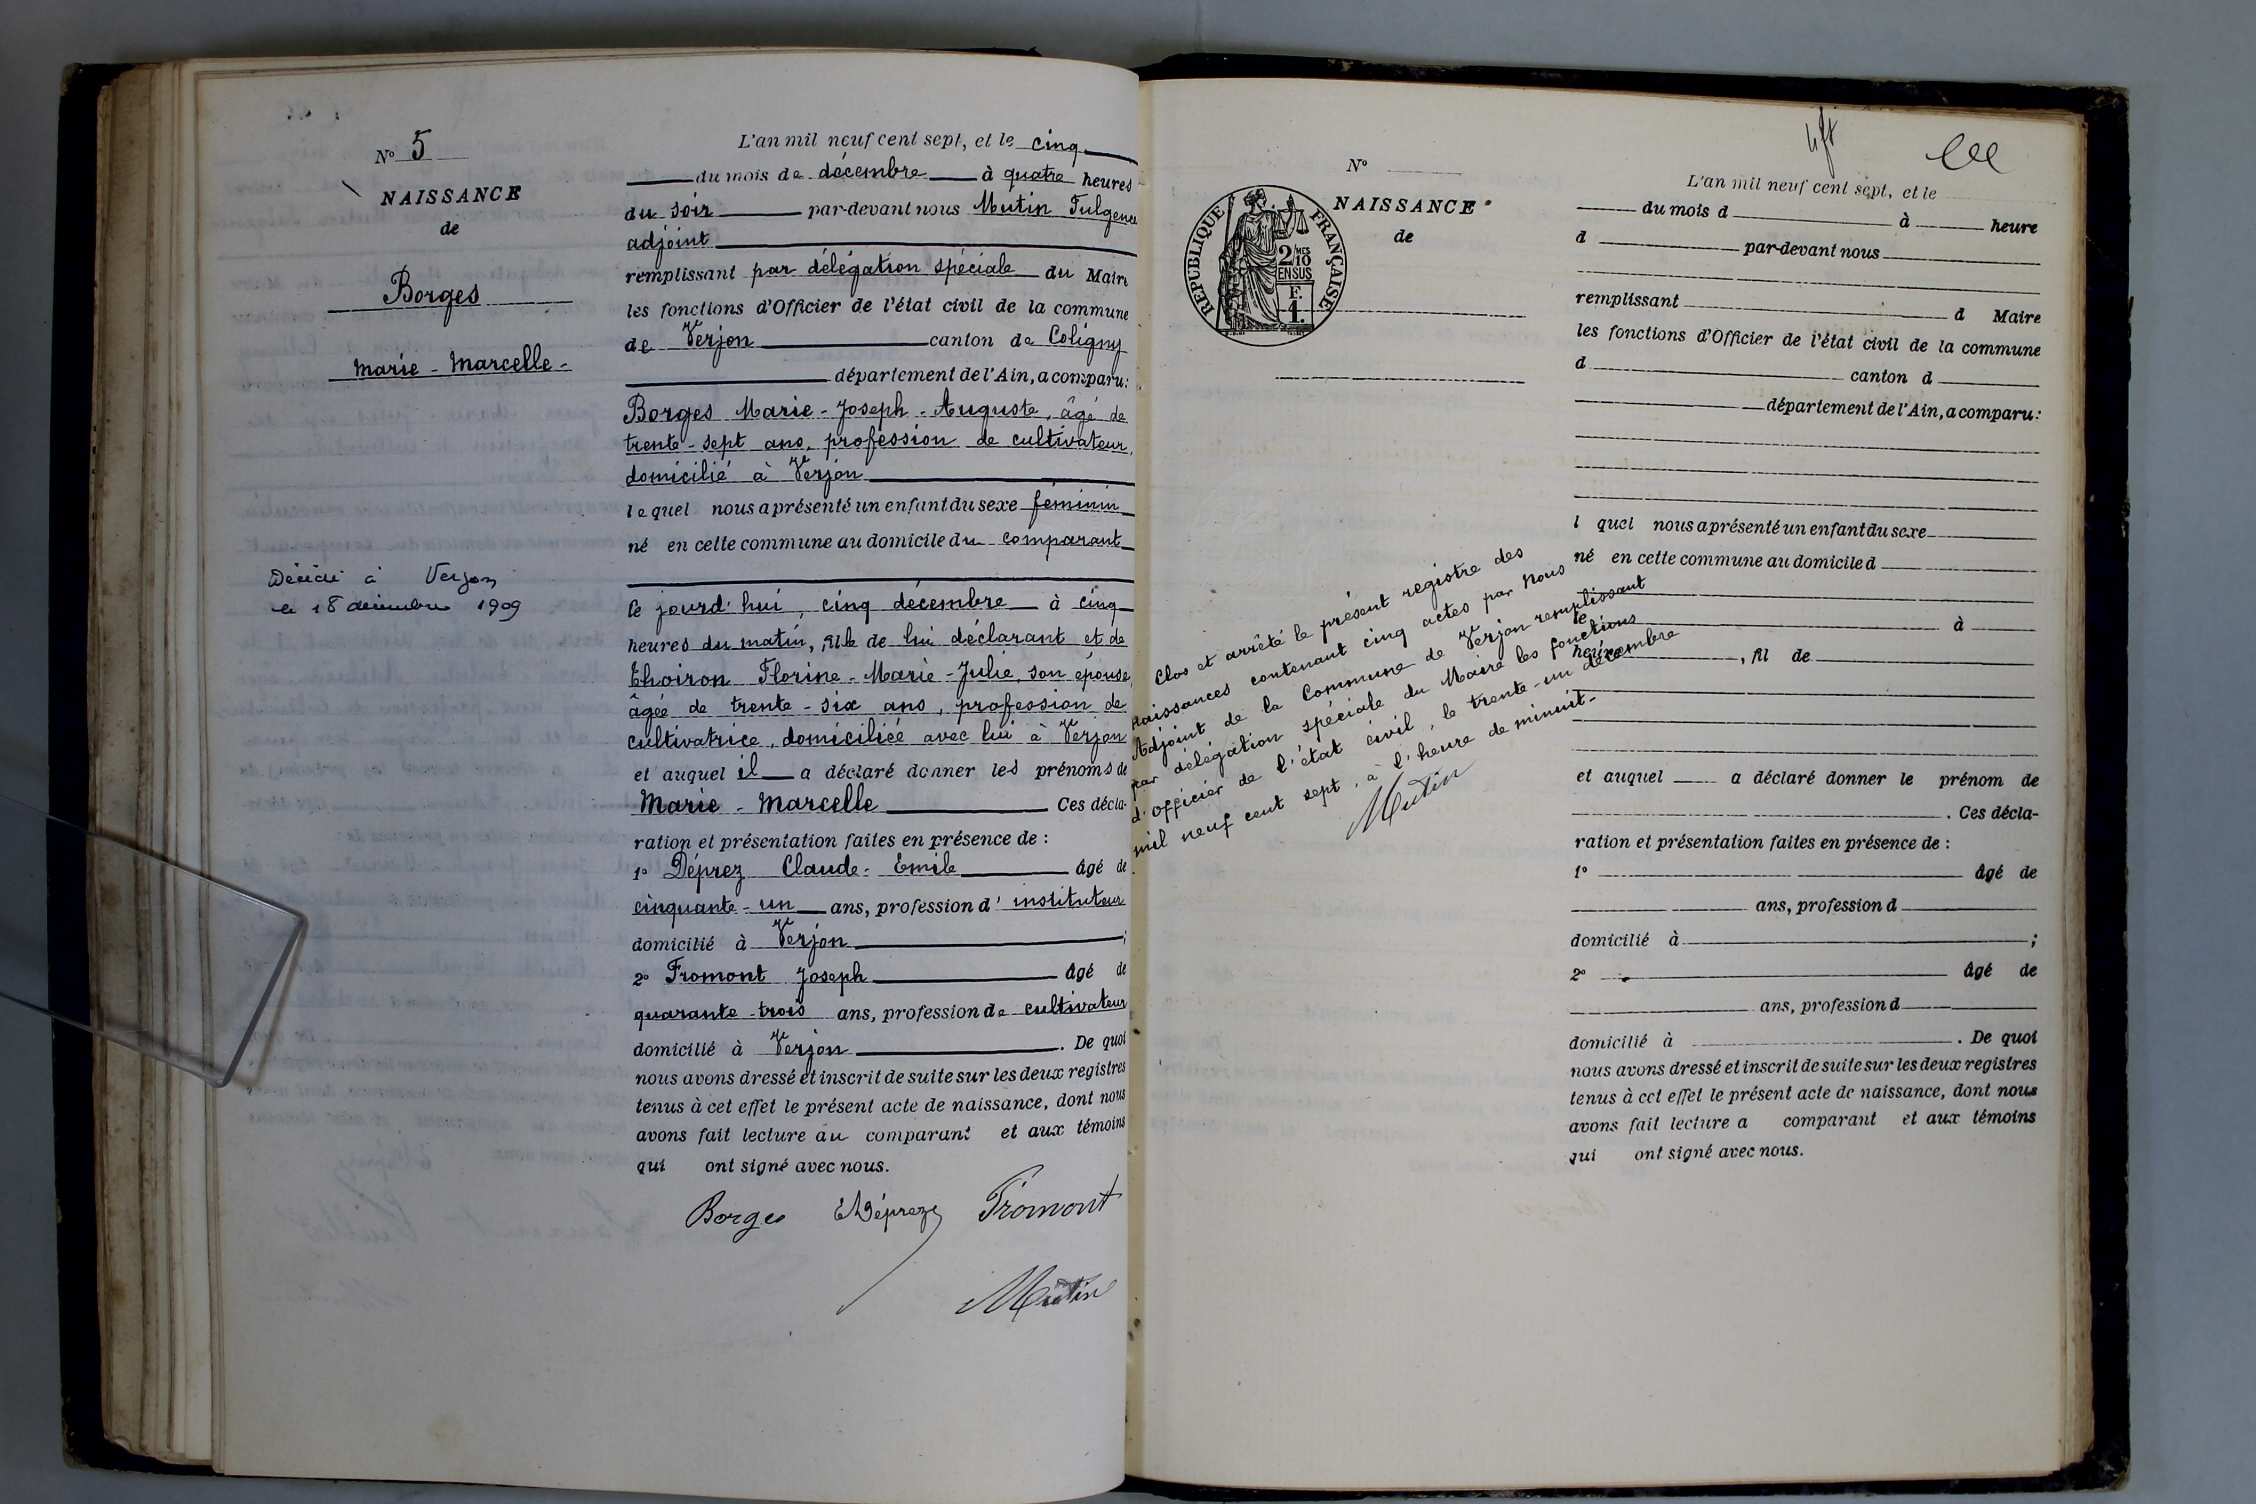 N° 5
NAISSANCE
de
Borges
Marie - Marcelle -
Décédé à Verjon
le 18 décembre 1909
L'an mil neuf cent sept, et le cinq
du mois de décembre à quatre heures
du soir par-devant nous Mutin Fulgence
adjoint
remplissant par délégation spéciale du Maire
les fonctions d'Officier de l'état civil de la commune
de Verjon canton de Coligny
département de l'Ain, a comparu:
Borges Marie - Joseph - Auguste, âgé de
trente - sept ans, profession de cultivateur,
domicilié à Verjon
lequel nous a présenté un enfant du sexe féminin
né en cette commune au domicile du comparant
le jourd'hui, cinq décembre à cinq
heures du matin, fille de lui déclarant et de
Thoiron Florine - Marie - Julie, son épouse,
âgée de trente - six ans, profession de
cultivatrice, domiciliée avec lui à Verjon
et auquel il a déclaré donner les prénoms de
Marie - Marcelle Ces décla-
ration et présentation faites en présence de :
1° Déprez Claude - Emile âgé de
cinquante - un ans, profession d'instituteur
domicilié à Verjon ;
2° Fromont Joseph âgé de
quarante - trois ans, profession de cultivateur
domicilié à Verjon . De quoi
nous avons dressé et inscrit de suite sur les deux registres
tenus à cet effet le présent acte de naissance, dont nous
avons fait lecture au comparant et aux témoins
qui ont signé avec nous.
Borges EDéprez Fromont
Mutin
N°
NAISSANCE
de
RÉPUBLIQUE FRANÇAISE
2/10 MES
EN SUS
F.
1.
Clos et arrêté le présent registre des
naissances contenant cinq actes par Nous
Adjoint de la Commune de Verjon remplissant
par délégation spéciale du Maire les fonctions
d'officier de l'état civil, le trente - un décembre
mil neuf cent sept, à l'heure de minuit -
Mutin
L'an mil neuf cent sept, et le
du mois d à heure
d par-devant nous
remplissant d Maire
les fonctions d'Officier de l'état civil de la commune
d canton d
département de l'Ain, a comparu:
l quel nous a présenté un enfant du sexe
né en cette commune au domicile d
le à
heure , fil de
et auquel a déclaré donner le prénom de
. Ces décla-
ration et présentation faites en présence de :
1° âgé de
ans, profession d
domicilié à ;
2° âgé de
ans, profession d
domicilié à . De quoi
nous avons dressé et inscrit de suite sur les deux registres
tenus à cet effet le présent acte de naissance, dont nous
avons fait lecture a comparant et aux témoins
qui ont signé avec nous.